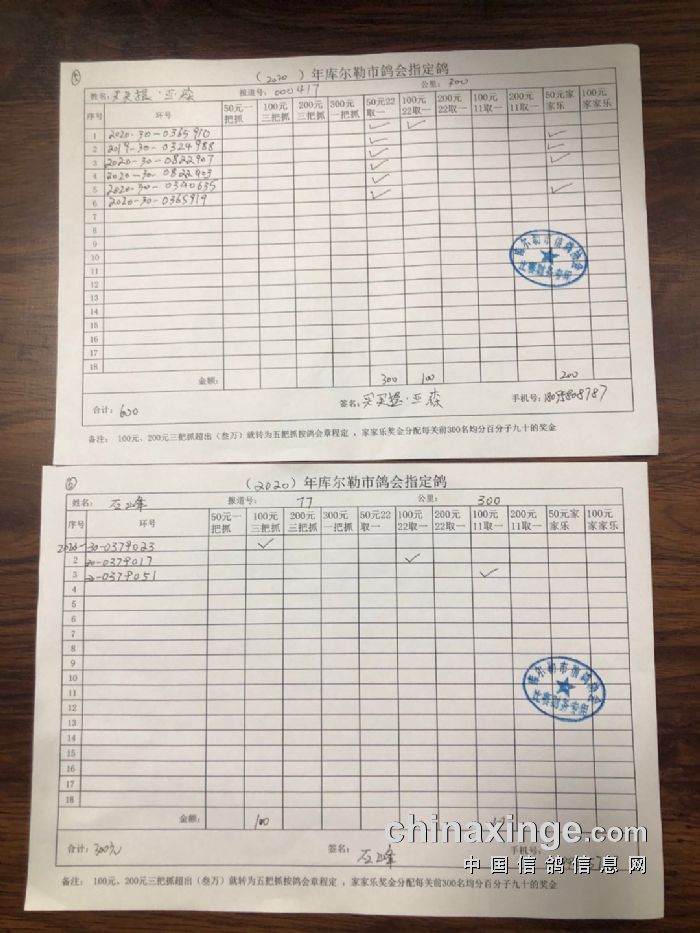 ⑤
（2020）年库尔勒市鸽会指定鸽
姓名：买买提·亚森 报道号：000417 公里：300
序号 环号 50元一把抓 100元三把抓 200元三把抓 300元一把抓 50元22取一 100元22取一 200元22取一 100元11取一 200元11取一 50元家家乐 100元家家乐
1 2020-30-0365910 ✓ ✓ ✓
2 2019-30-0324988 ✓ ✓
3 2020-30-0822907 ✓ ✓
4 2020-30-0822903 ✓
5 2020-30-0340635 ✓ ✓
6 2020-30-0365919
7
8
9
10
11
12
13
14
15
16
17
18
金额： 300 100 200
合计：600 签名：买买提·亚森 手机号：
备注： 100元、200元三把抓超出（叁万）就转为五把抓按鸽会章程定，家家乐奖金分配每关前300名均分百分子九十的奖金
⑥
（2020）年库尔勒市鸽会指定鸽
姓名：石峰 报道号：77 公里：300
序号 环号 50元一把抓 100元三把抓 200元三把抓 300元一把抓 50元22取一 100元22取一 200元22取一 100元11取一 200元11取一 50元家家乐 100元家家乐
2020-30-0379023 ✓
2 20-0379017 ✓
3 20-0379051 ✓
4
5
6
7
8
9
10
11
12
13
14
15
16
18
金额： 100
合计：300元 签名：石峰 手机号：
备注： 100元、200元三把抓超出（叁万）就转为五把抓按鸽会章程定，家家乐奖金分配每关前300名均分百分子九十的奖金
库尔勒市信鸽协会
比赛财务专用
chinaxinge.com
中国信鸽信息网